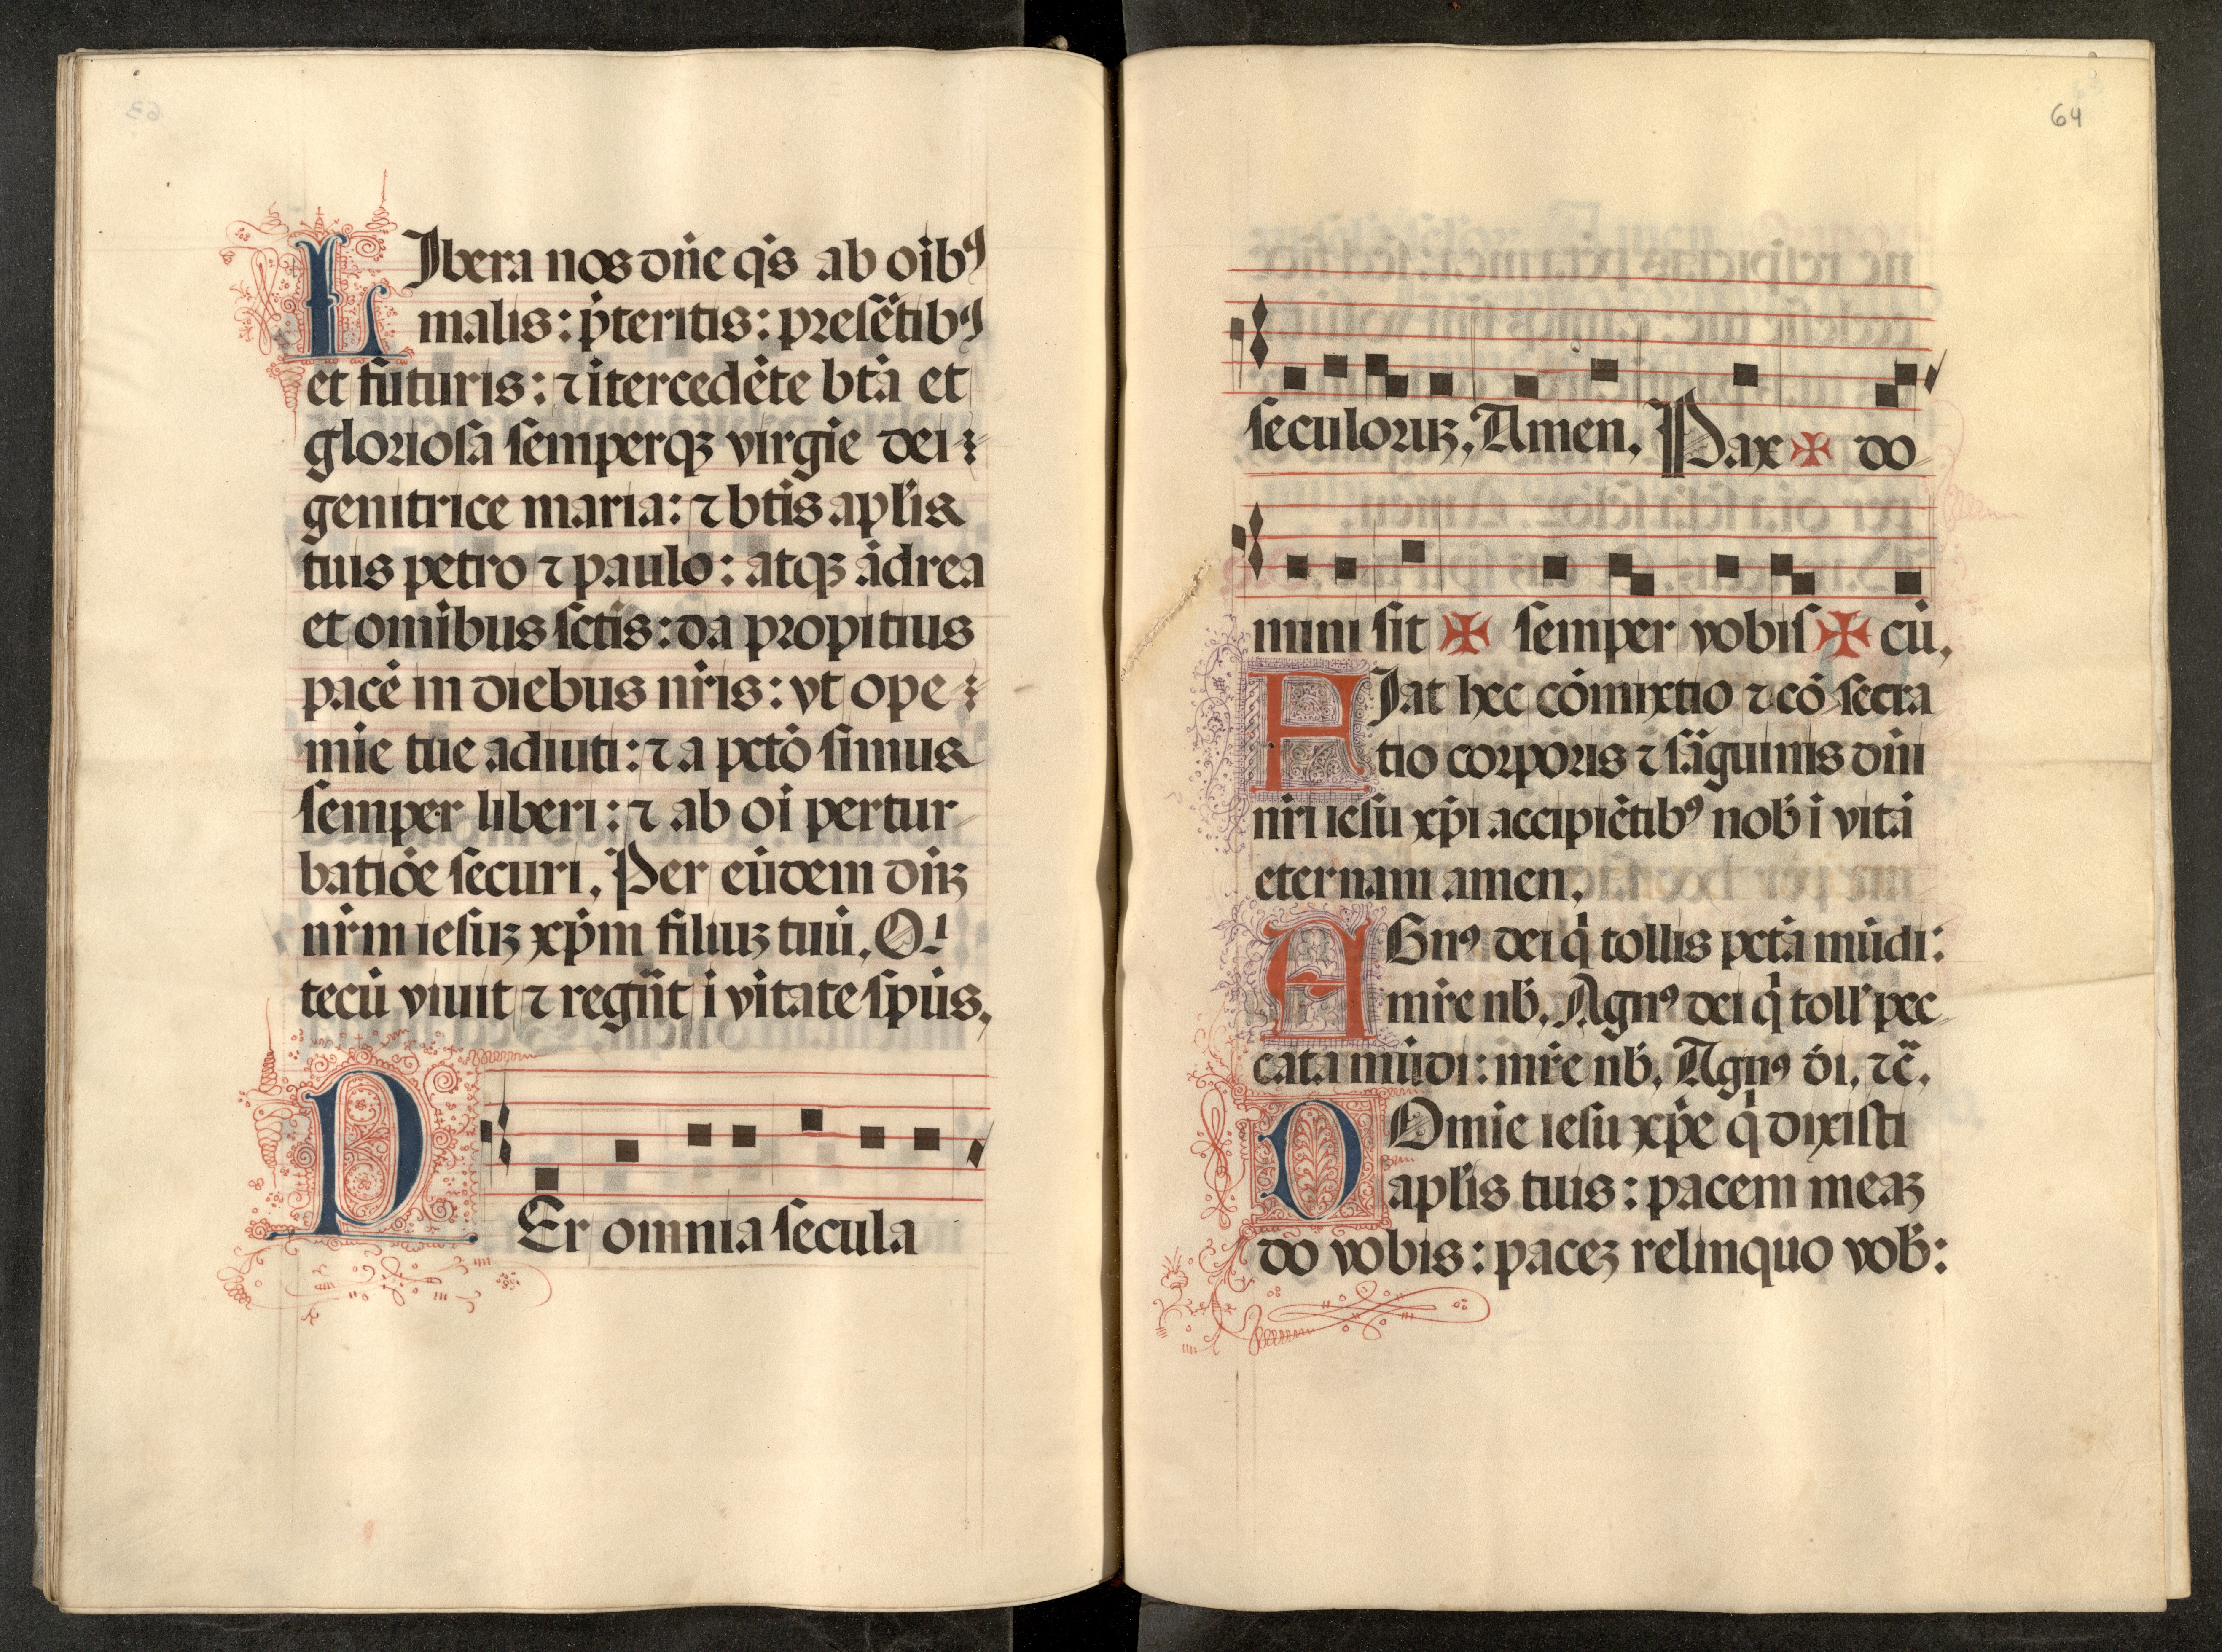 LIbera nos dn̄e q̄s ab oib⁹
malis: p̄teritis: presẽtib⁹
et futuris: ⁊ ītercedẽte btā et
gloriosa semperqꝫ virgīe dei
genitrice maria: ⁊ btīs apl̄is
tuis petro ⁊ paulo: atqꝫ ādrea
et omībus sctīs: da propitius
pacē in diebus nr̄is: vt ope
mīe tue adiuti: ⁊ a pctō simus
semper liberi: ⁊ ab oī pertur
batiōe securi. Per eūdem dn̄ꝫ
nr̄m iesuꝫ xp̄m filiuꝫ tuū. Qⁱ
tecū viuit ⁊ regn̄t ī vītate sp̄us.
PEr omnia secula
64
seculoruꝫ. Amen. Pax ✠ do
mini sit ✠ semper vobis ✠ cū.
FIat hec cōmixtio ⁊ cōsecra
tio corporis ⁊ sāguinis dn̄i
nr̄i iesu xp̄i accipiẽtib⁹ nob̄ ī vitā
eternam amen.
AGn⁹ dei q̄ tollis pctā mūdi:
mr̄e nb̄. Agn⁹ dei q̄ toll' pec
cata mūdi: mr̄e nb̄. Agn⁹ d̄i. ⁊c̄.
DOmīe iesu xp̄e q̄ dixisti
apl̄is tuis: pacem meaꝫ
do vobis: paceꝫ relinquo vob̄: